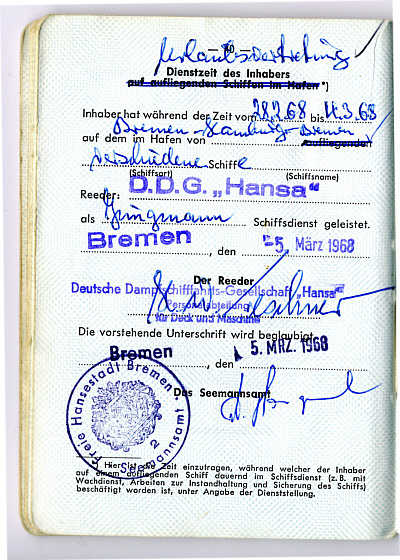 Urlaubsvertretung
— 40 —
Dienstzeit des Inhabers
auf aufliegenden Schiffen im Hafen*)
Inhaber hat während der Zeit vom 28.2.68 bis 11.3.68
Bremen-Hamburg-Bremen
auf dem im Hafen von aufliegenden
verschiedene Schiffe
(Schiffsart) (Schiffsname)
Reeder: D.D.G. „Hansa“
als Jungmann Schiffsdienst geleistet.
Bremen, den -5. März 1968
Der Reeder
Deutsche Dampfschifffahrts-Gesellschaft „Hansa“
Personalabteilung
für Deck und Maschine
Die vorstehende Unterschrift wird beglaubigt.
Bremen, den 5. MRZ. 1968
Das Seemannsamt
Freie Hansestadt Bremen
Seemannsamt
2
*) Hier ist die Zeit einzutragen, während welcher der Inhaber
auf einem aufliegenden Schiff dauernd im Schiffsdienst (z. B. mit
Wachdienst, Arbeiten zur Instandhaltung und Sicherung des Schiffs)
beschäftigt worden ist, unter Angabe der Dienststellung.